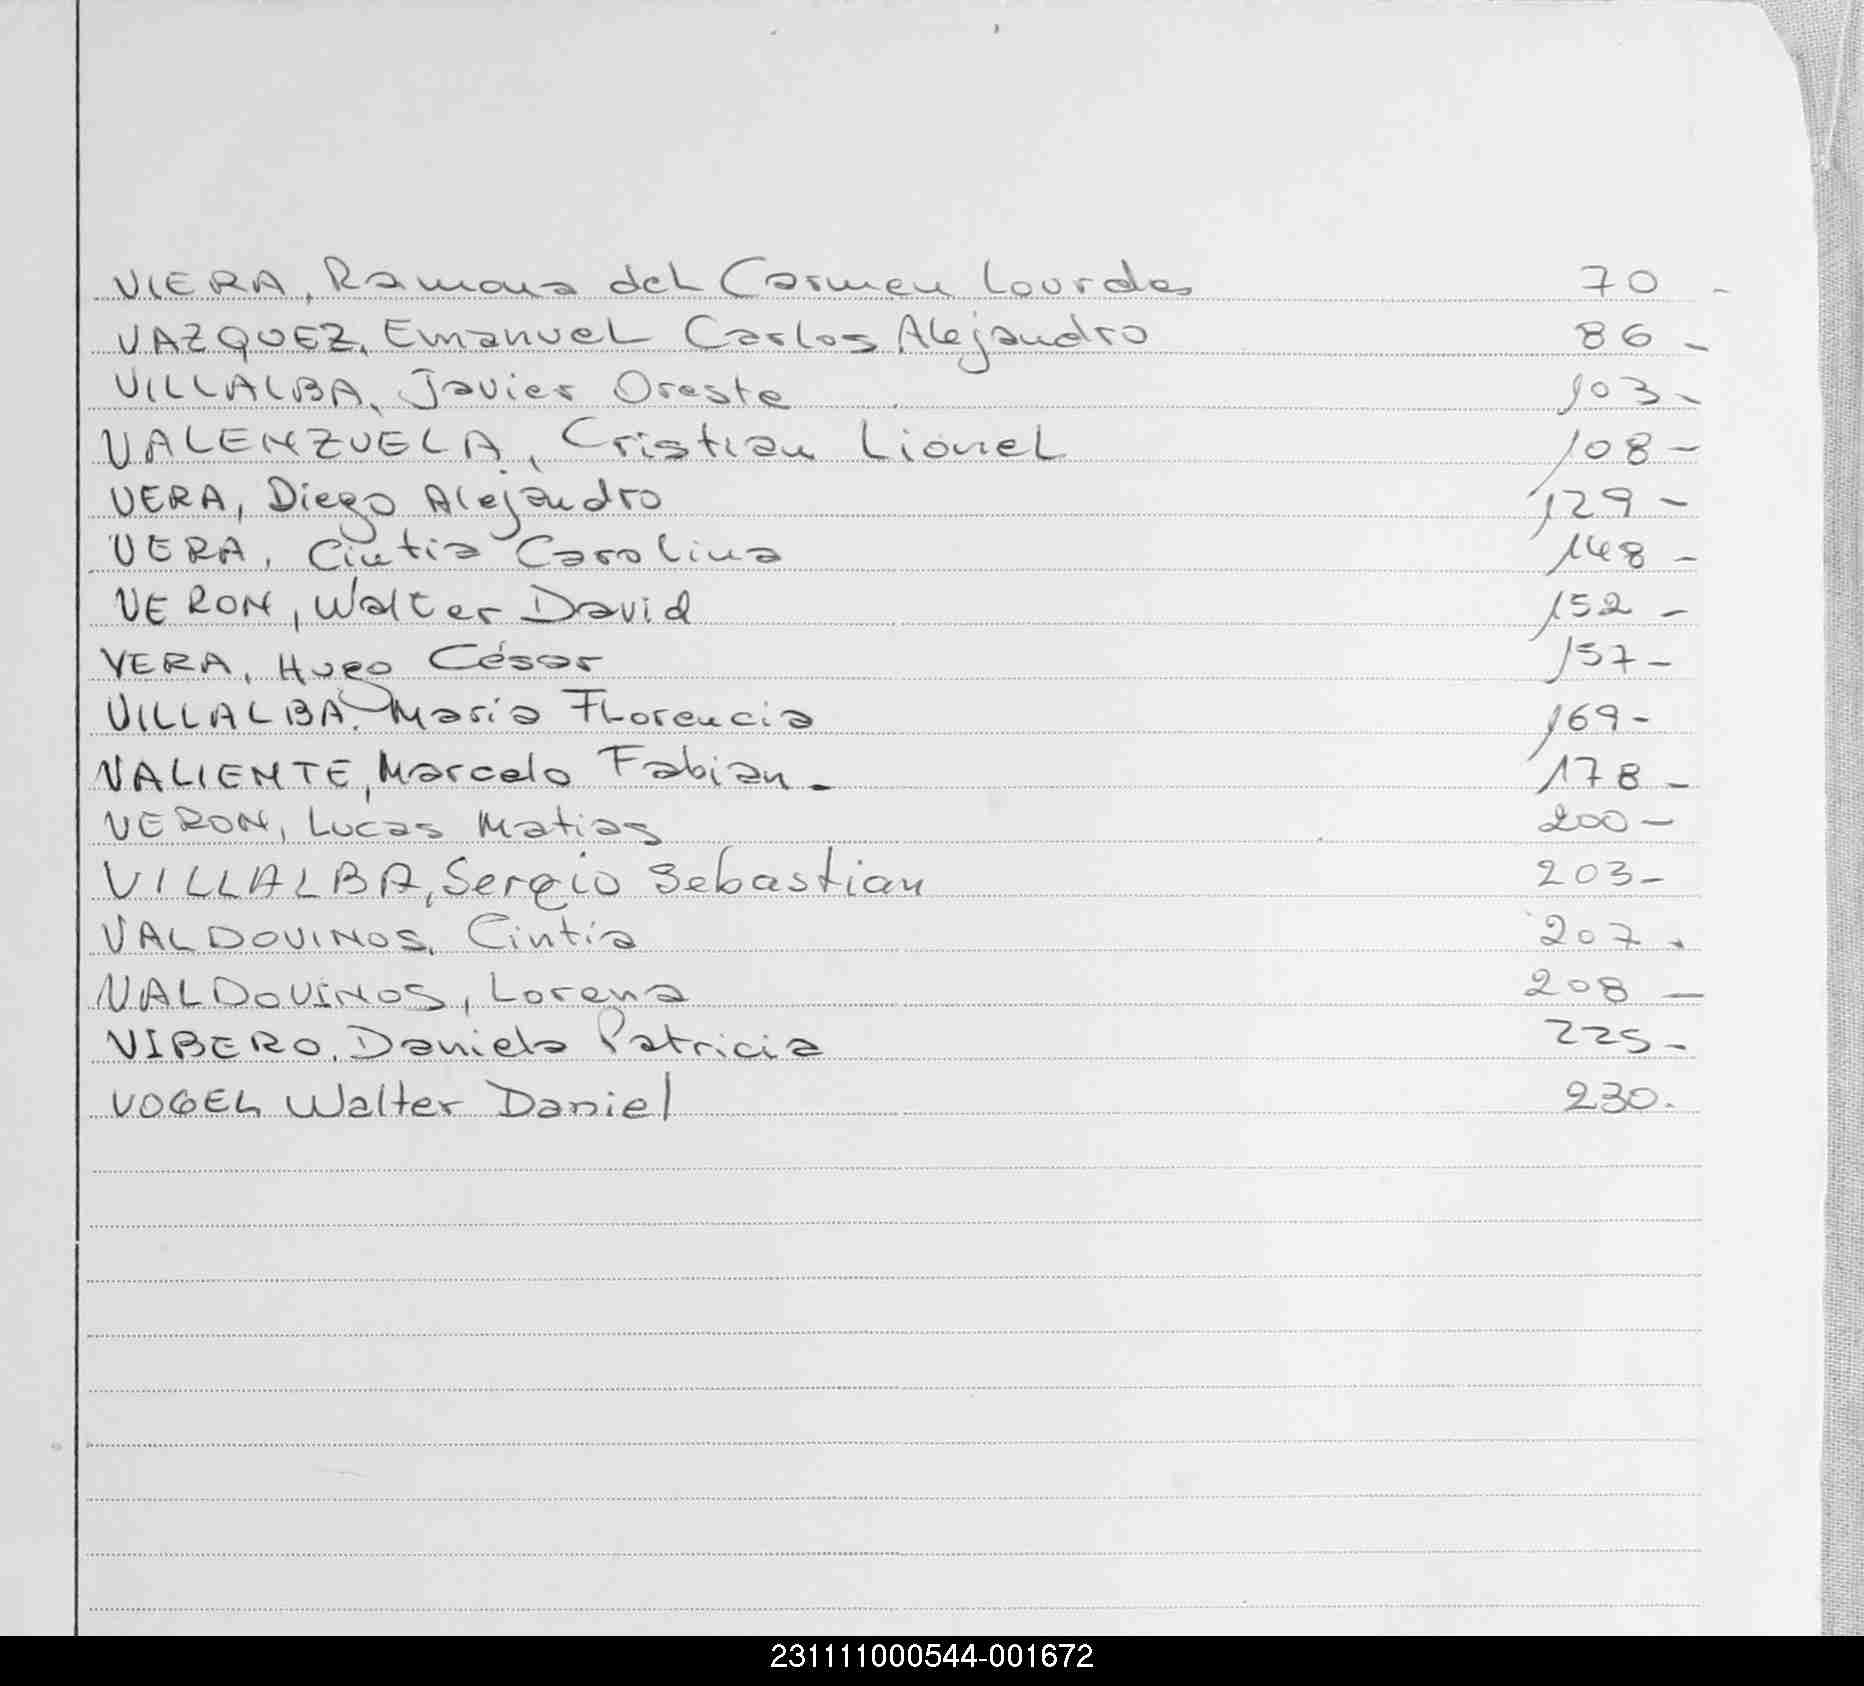 VIERA, Ramona del Carmen Lourdes 70 -
VAZQUEZ, Emanuel Carlos Alejandro 86 -
VILLALBA, Javier Oreste 103 -
VALENZUELA, Cristian Lionel 108 -
VERA, Diego Alejandro 129 -
VERA, Cintia Carolina 148 -
VERON, Walter David 152 -
VERA, Hugo César 157 -
VILLALBA, Maria Florencia 169 -
VALIENTE, Marcelo Fabian - 178 -
VERON, Lucas Matias 200 -
VILLALBA, Sergio Sebastian 203 -
VALDOVINOS, Cintia 207 .
VALDOVINOS, Lorena 208 -
VIBERO, Daniela Patricia 225 -
VOGEL Walter Daniel 230.
231111000544-001672